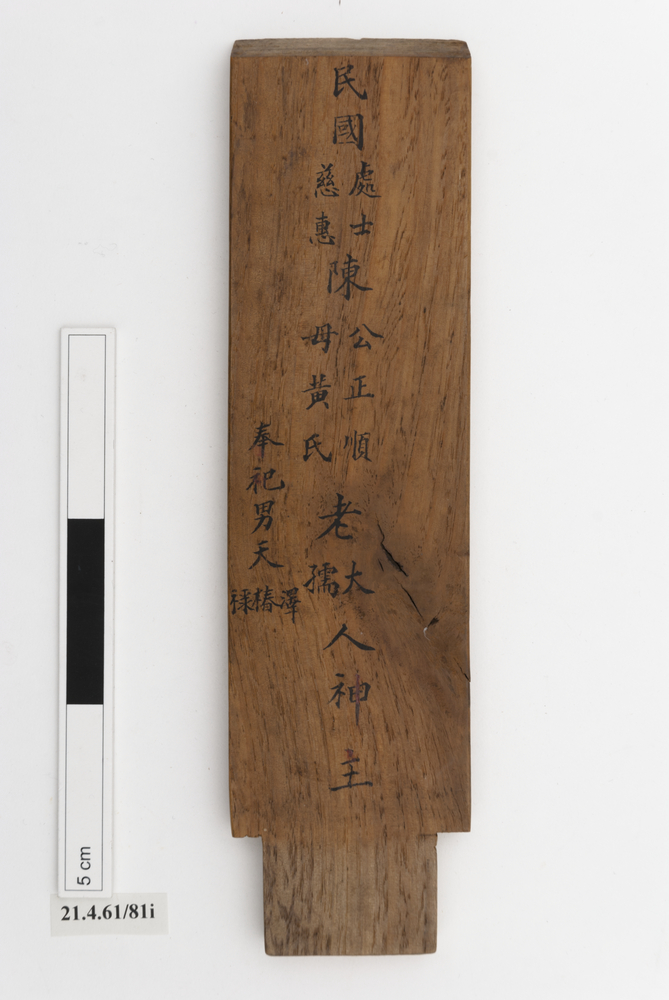 民國
處士
慈惠
陳
公正順
母黃氏
老
大
孺
人神主
奉祀男天
澤椿祿
5 cm
21.4.61/81i